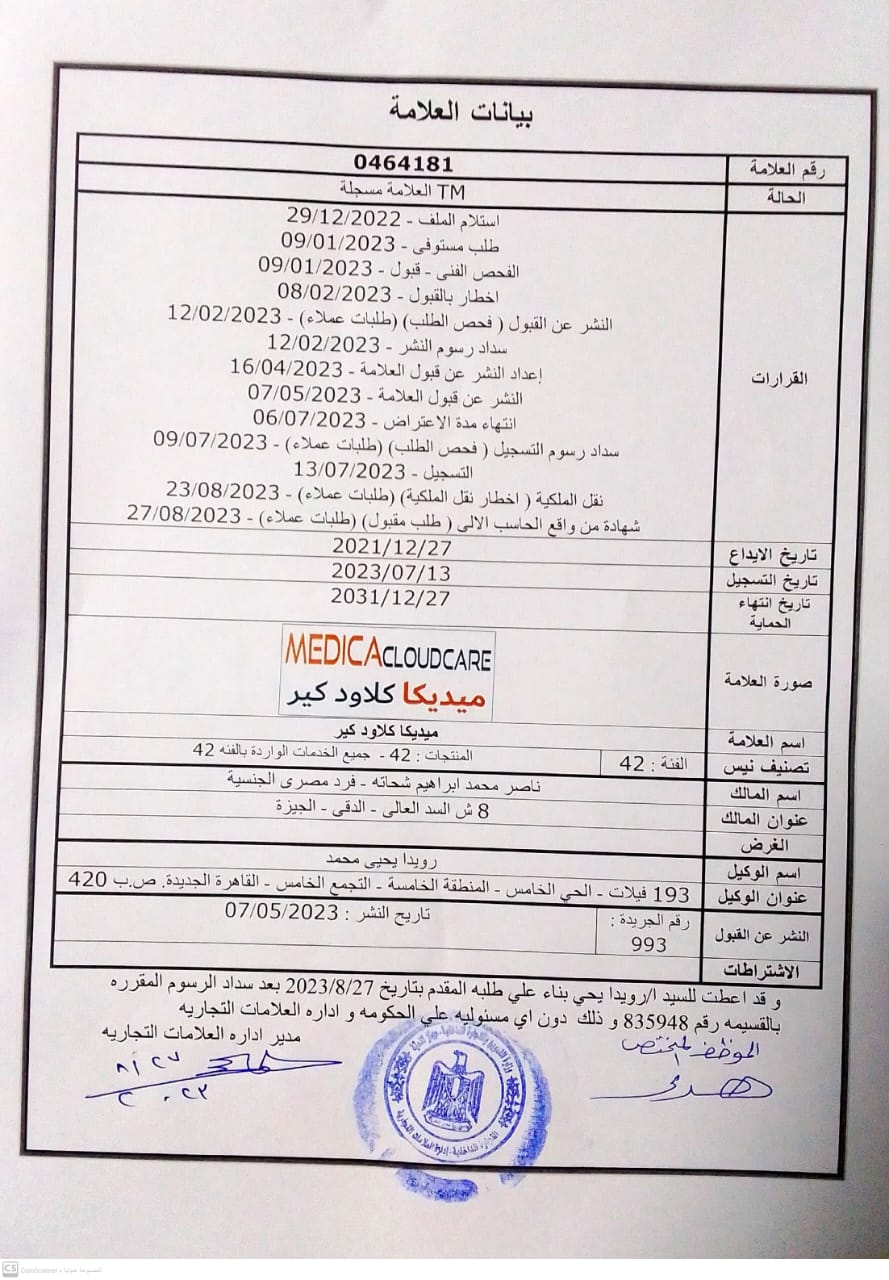 بيانات العلامة
رقم العلامة 0464181
الحالة TM العلامة مسجلة
القرارات
استلام الملف - 29/12/2022
طلب مستوفى - 09/01/2023
الفحص الفنى - قبول - 09/01/2023
اخطار بالقبول - 08/02/2023
النشر عن القبول ( فحص الطلب) (طلبات عملاء) - 12/02/2023
سداد رسوم النشر - 12/02/2023
إعداد النشر عن قبول العلامة - 16/04/2023
النشر عن قبول العلامة - 07/05/2023
انتهاء مدة الاعتراض - 06/07/2023
سداد رسوم التسجيل ( فحص الطلب) (طلبات عملاء) - 09/07/2023
التسجيل - 13/07/2023
نقل الملكية ( اخطار نقل الملكية) (طلبات عملاء) - 23/08/2023
شهادة من واقع الحاسب الالى ( طلب مقبول) (طلبات عملاء) - 27/08/2023
تاريخ الايداع 2021/12/27
تاريخ التسجيل 2023/07/13
تاريخ انتهاء
الحماية 2031/12/27
صورة العلامة
MEDICACLOUDCARE
ميديكا كلاود كير
اسم العلامة ميديكا كلاود كير
تصنيف نيس الفئة : 42 المنتجات : 42 - جميع الخدمات الواردة بالفئه 42
اسم المالك ناصر محمد ابراهيم شحاته - فرد مصرى الجنسية
عنوان المالك 8 ش السد العالى - الدقى - الجيزة
الغرض
اسم الوكيل رويدا يحيى محمد
عنوان الوكيل 193 فيلات - الحي الخامس - المنطقة الخامسة - التجمع الخامس - القاهرة الجديدة. ص.ب 420
النشر عن القبول رقم الجريدة : 993 تاريخ النشر : 07/05/2023
الاشتراطات
و قد اعطت للسيد ا/رويدا يحي بناء علي طلبه المقدم بتاريخ 2023/8/27 بعد سداد الرسوم المقرره
بالقسيمه رقم 835948 و ذلك دون اي مسئوليه علي الحكومه و اداره العلامات التجاريه
الموظف المختص مدير اداره العلامات التجاريه
هدى
٨/٢٧
٢٠٢٣
CS CamScanner